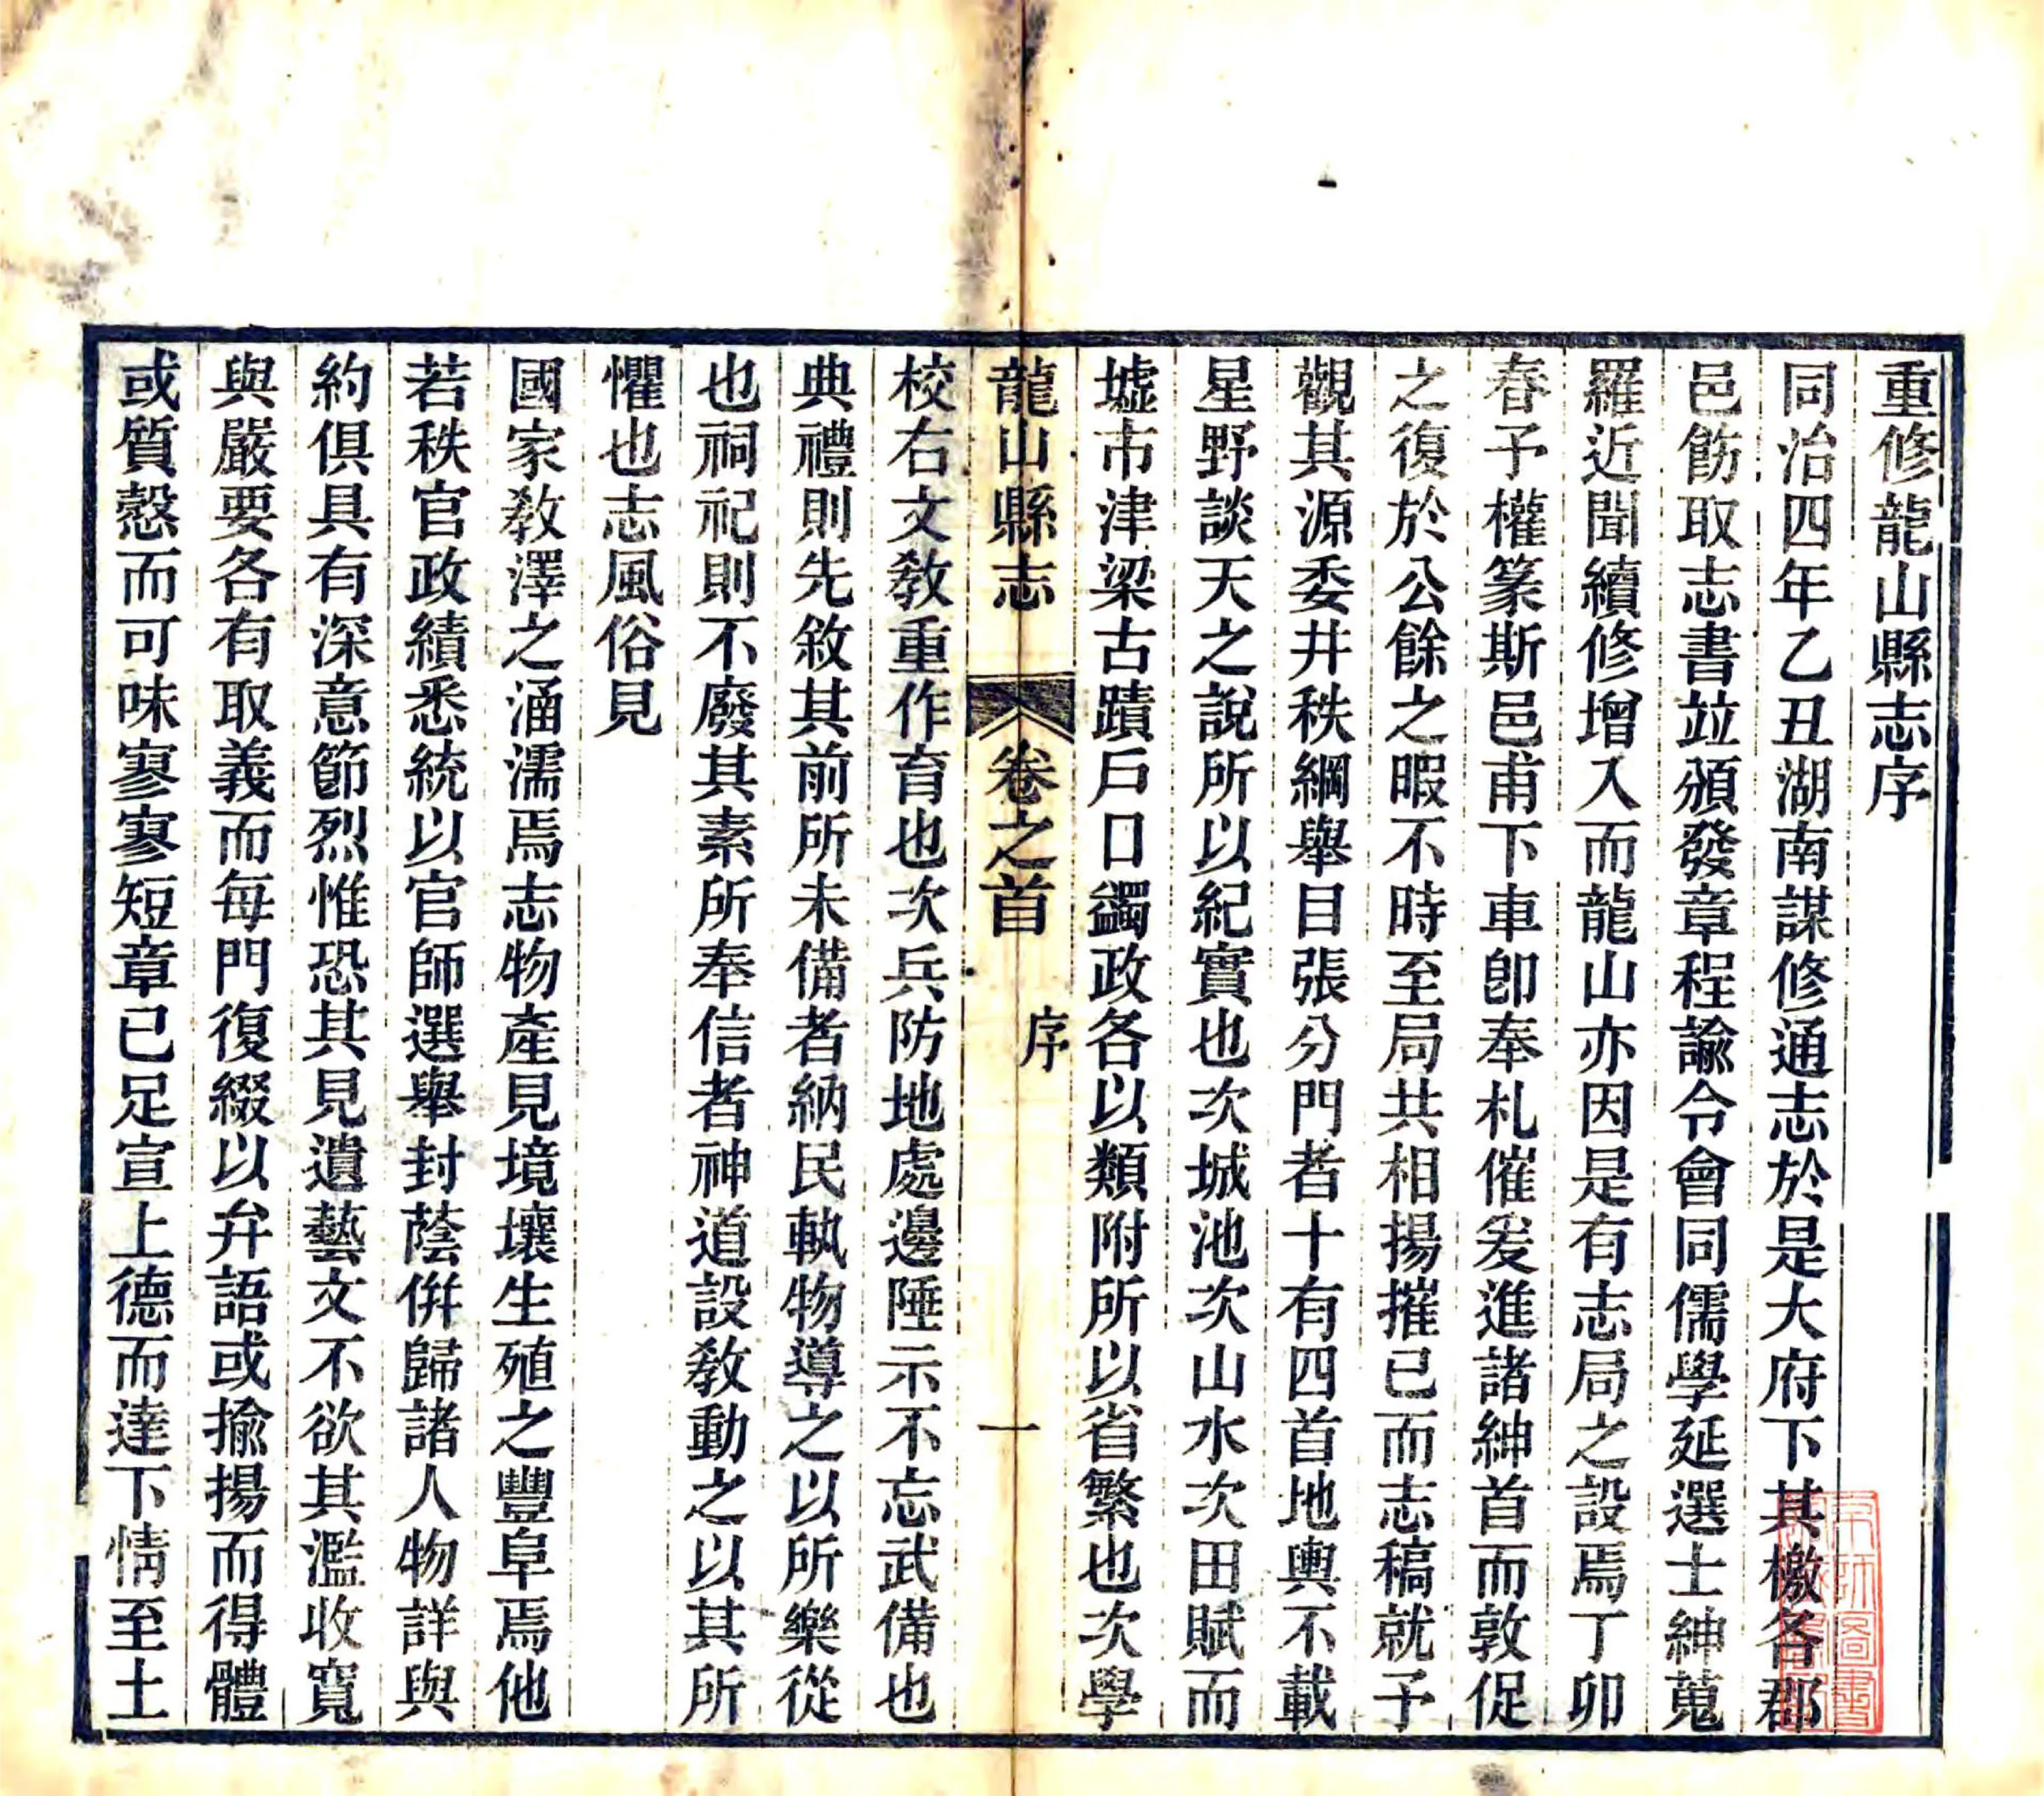 重修龍山縣志序
同治四年乙丑湖南謀修通志於是大府下其檄各郡
邑飭取志書竝頒發章程諭令會同儒學延選士紳蒐
羅近聞續修增入而龍山亦因是有志局之設焉丁卯
春予權篆斯邑甫下車卽奉札催爰進諸紳首而敦促
之復於公餘之暇不時至局共相揚搉已而志稿就予
觀其源委井秩綱舉目張分門者十有四首地輿不載
星野談天之說所以紀實也次城池次山水次田賦而
墟市津梁古蹟戶口蠲政各以類附所以省繁也次學
龍山縣志
卷之首
序
一
校右文敎重作育也次兵防地處邊陲示不忘武備也
典禮則先敘其前所未備者納民軌物導之以所樂從
也祠祀則不廢其素所奉信者神道設敎動之以其所
懼也志風俗見
國家敎澤之涵濡焉志物產見境壤生殖之豐阜焉他
若秩官政績悉統以官師選舉封蔭倂歸諸人物詳與
約俱具有深意節烈惟恐其見遺藝文不欲其濫收寬
與嚴要各有取義而每門復綴以弁語或揄揚而得體
或質慤而可味寥寥短章已足宣上德而達下情至土